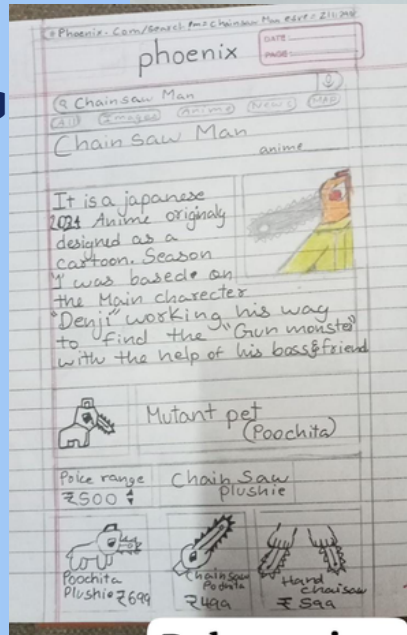 Phoenix.Com/Search
phoenix
DATE:
PAGE:
Chainsaw Man
All Images Anime News MAP
Chain Saw Man
anime
It is a japanese
Anime originaly
designed as a
cartoon. Season
"1" was based on
the Main charecter
"Denji" working his way
to find the "Gun monster"
with the help of his boss & friend
Mutant pet
(Poochita)
Price range
₹500
Chain Saw
plushie
Poochita
Plushie ₹699
Chainsaw
₹499
Hand
chaisaw
₹599